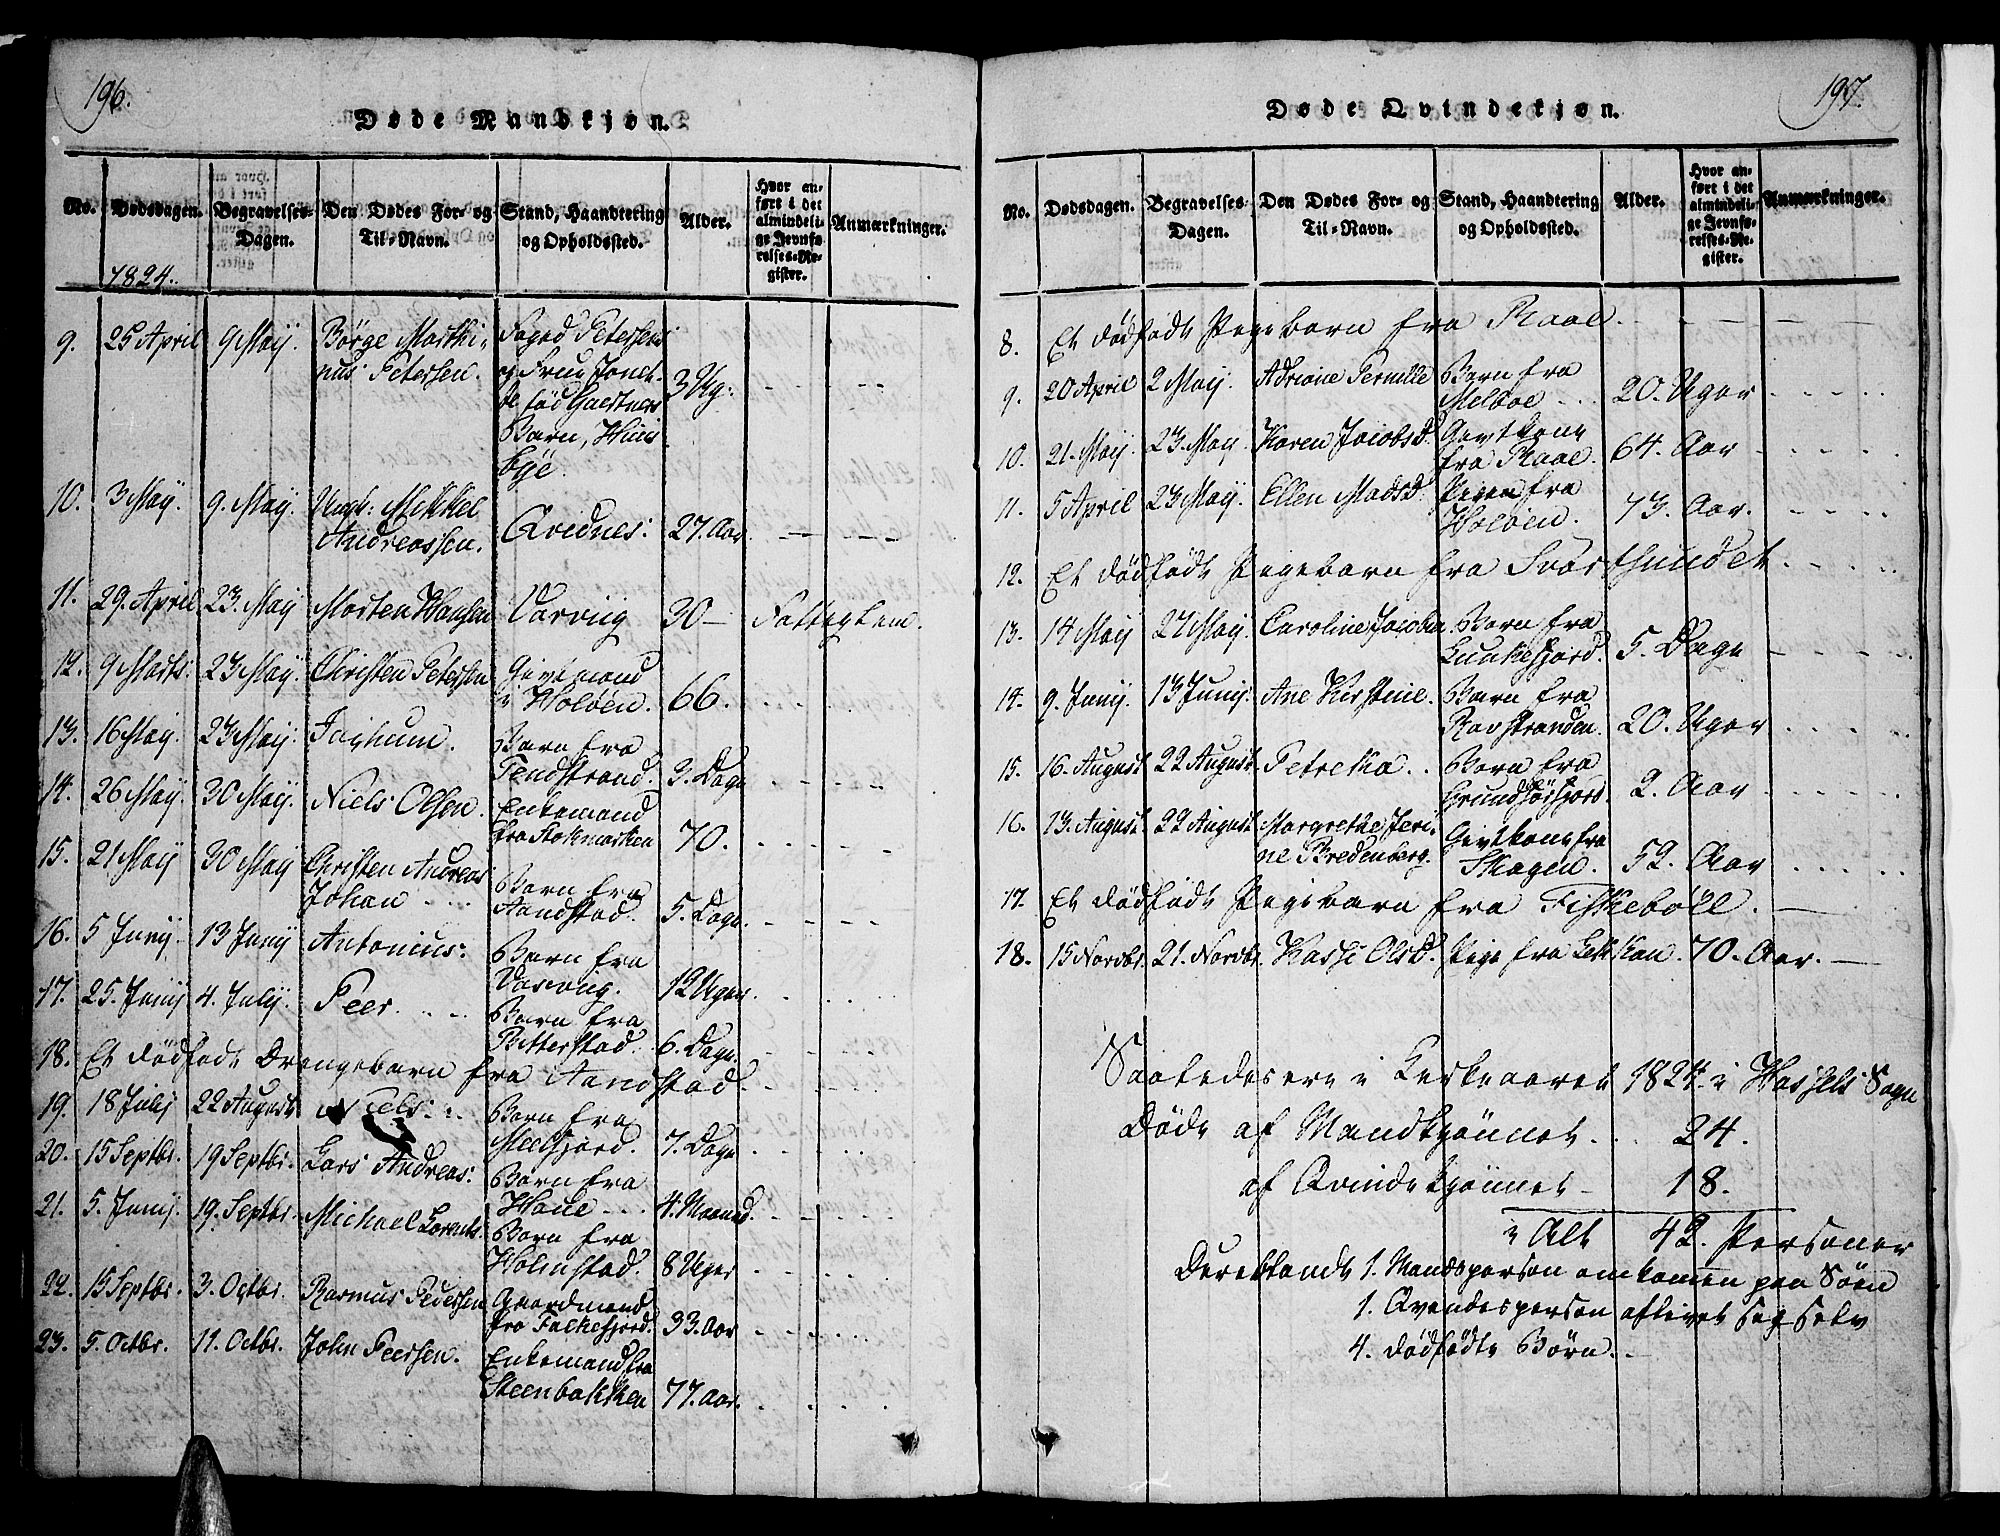 196.
Døde Mandkjøn.
No. Dødsdagen. Begravelses-Dagen. Den Dødes For- og Til-Navn. Stand, Haandtering og Opholdssted. Alder. Hvor anført i det almindelige Jevnførelses-Register. Anmærkninger.
1824.
9. 25 April 9 Maij. Börge Marthinus Petersen. Foged Petersens og Frue født Gaertners Barn, 3 Ug:
10. 3 Maij. 9. Maij. Ungk: Mikkel Andreassen. Qvidnes: 27. Aar
11. 29. April 23. Maij Morten Hansen Vorviig 30 — Fattiglem.
12. 9 Marts: 23 Maij. Christen Petersen Givtmand i Holöen. 66.
13. 16 Maij. 23 Maij. Jochum. Barn fra Tendstrand. 3. Dage
14. 26 Maij. 30 Maij. Niels Olsen. Enkemand fra Stokmarken 70.
15. 21 Maij 30 Maij Christen Andreas Johan Barn fra Aandstad. 5. Dage
16. 5 Junij. 13 Junij Antonius: Barn fra 12 Uger
17. 25. Junij 4. Julij. Peer. Barn fra Bitterstad. 6. Dage.
18. Et dödfödt Drengebarn fra Aandstad.
19. 18 Julij 22 August Niels: Barn fra Melfjord. 7. Dage
20. 15 Septbr. 19 Septbr. Lars Andreas: Barn fra 4. Maaned.
21. 5. Junij. 19. Septbr. Michael Lorents. Barn fra Holmstad. 8 Uger
22. 15 Septbr. 3. Octbr. Rasmus Pedersen Gaardmand fra Falkefjord. 33. Aar
23. 5. Octbr. 11. Octbr. John Peersen. Enkemand fra Steenbakken 77. Aar.
197.
Døde Qvindekjøn.
No. Dødsdagen. Begravelses-Dagen. Den Dødes For- og Til-Navn. Stand, Haandtering og Opholdssted. Alder. Hvor anført i det almindelige Jevnførelses-Register. Anmærkninger.
8. Et dödfödt Pigebarn fra Kaae.
9. 20 April 2 Maij. Adriane Pernille Barn fra Melboe 20. Uger
10. 21. Maij 23. Maij Karen Jacobsd. Givtkone fra 64. Aar
11. 5 April 23 Maij. Ellen Madsd. Pigen fra Holöen. 73. Aar.
12. Et dödfödt Pigebarn fra Svortsundet.
13. 14 Maij 27 Maij. Caroline Jacobea. Barn fra Lunkefjord. 5. Dage
14. 9. Junij. 13 Junij. Ane Kirstine. Barn fra Ravstranden. 20. Uger
15. 16. August 22 August. Petreka. Barn fra Grundförfjord. 2. Aar
16. 13. August. 22 August Margrethe Jerine Bredenberg. Givtkone fra Skagen. 52. Aar
17. Et dödfödt Pigebarn fra Fiskeböll.
18. 15 Novbr. 21. Novbr. Olsd. Pige fra 70. Aar.
Saaledes ere i Kirkeaaret 1824. i Hassels Sogn
Döde af Mandkjönnet 24.
af Qvindekjönnet 18.
i Alt 42. Personer
Deriblandt 1. Mandsperson omkommen paa Söen
1. Qvindesperson aflivet sig selv
4. dödfödte Börn.